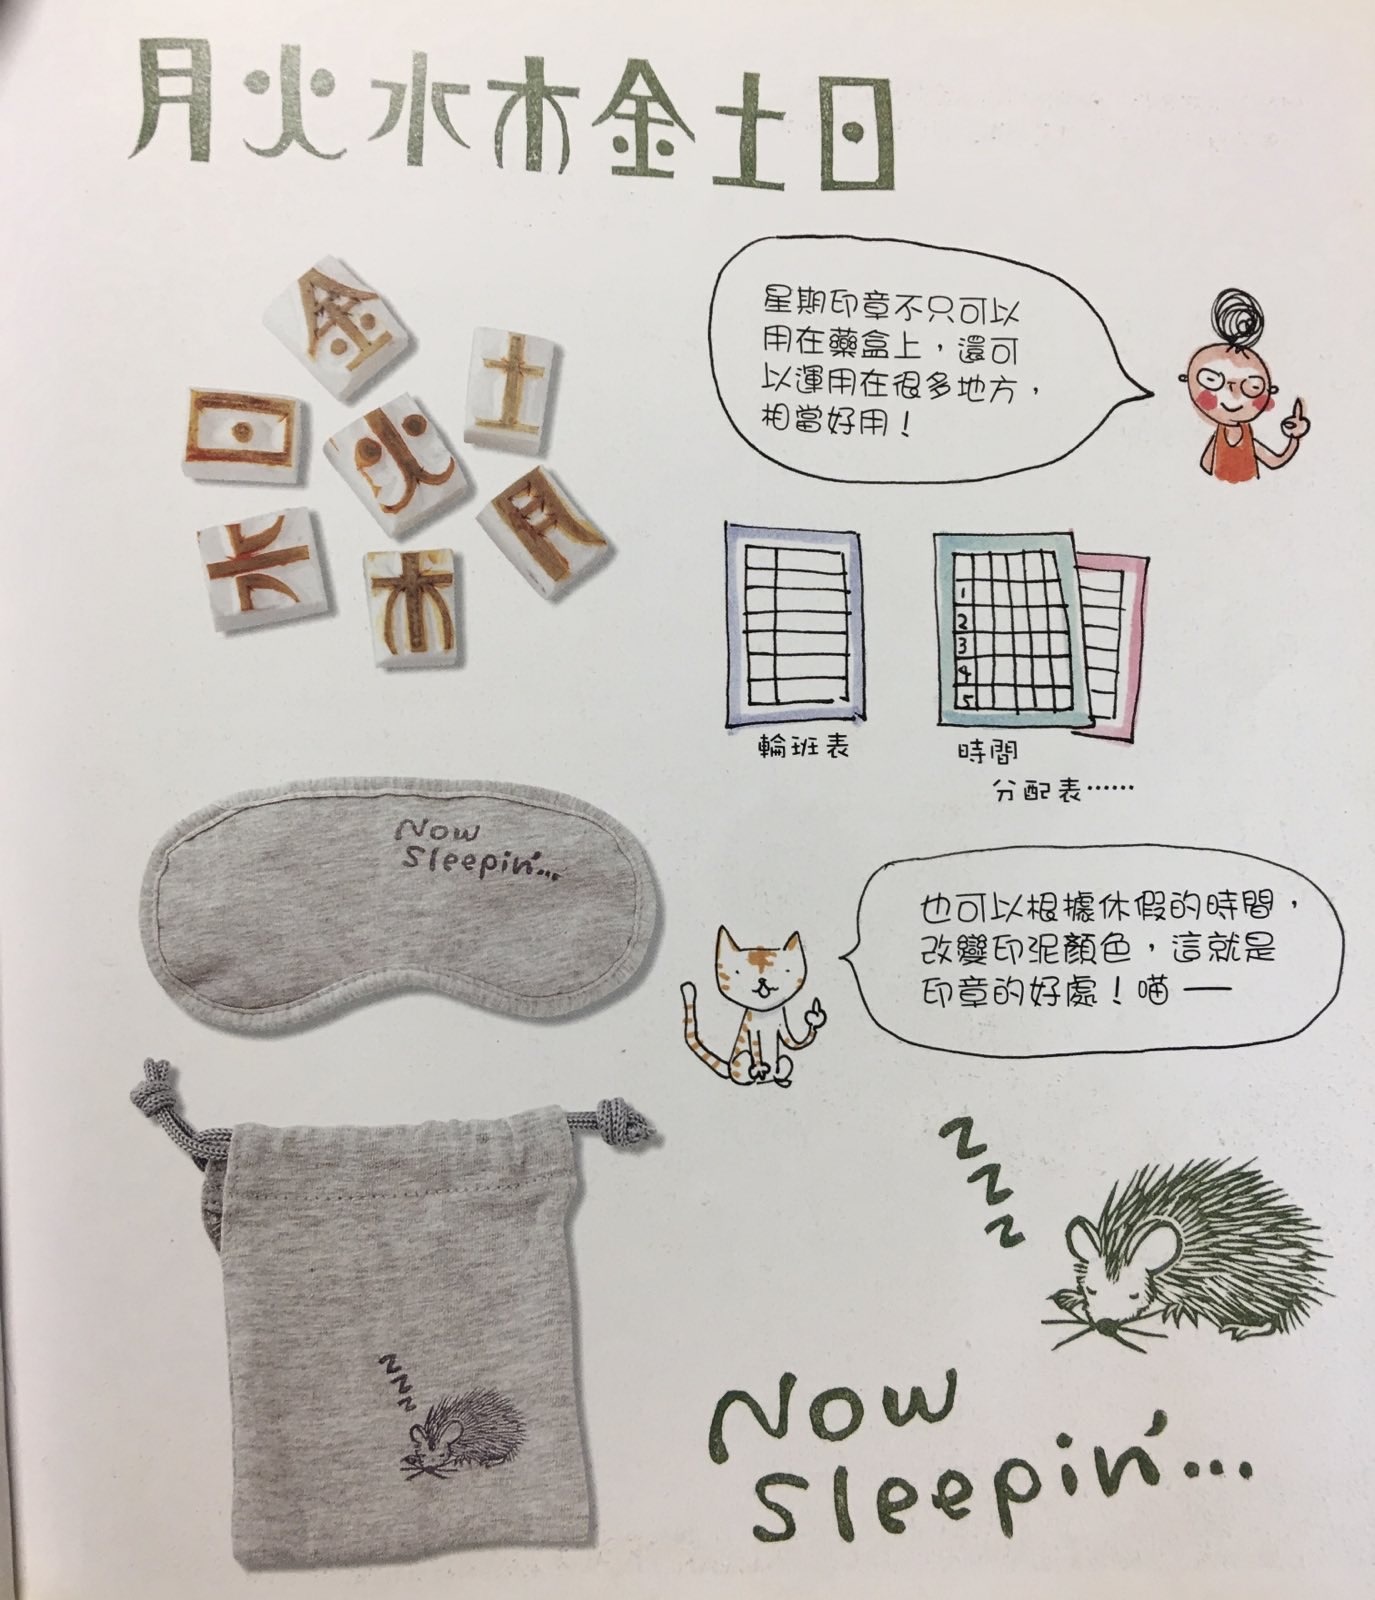 月火水木金土日
金
土
日
火
月
水
木
星期印章不只可以
用在藥盒上，還可
以運用在很多地方，
相當好用！
1
2
3
4
5
輪班表
時間
分配表……
Now
Sleepin'...
也可以根據休假的時間，
改變印泥顏色，這就是
印章的好處！喵──
z
z
z
z
z
z
Now
Sleepin'...